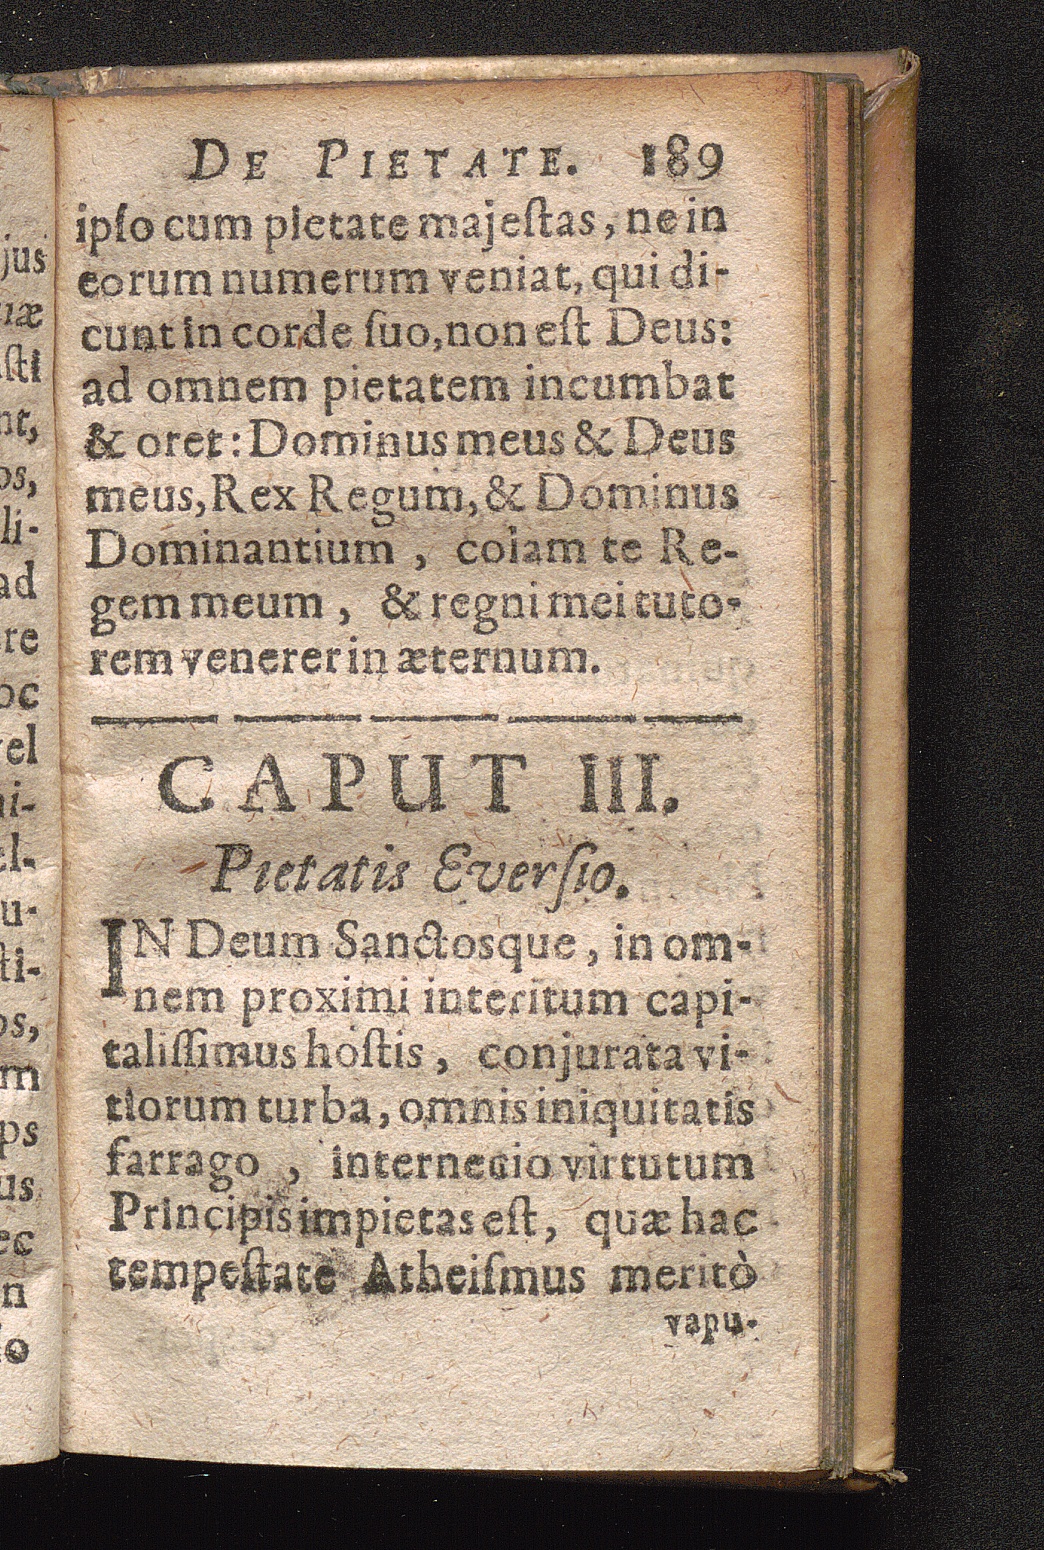 DE PIETATE. 189
ipſo cum pietate majeſtas, ne in
eorum numerum veniat, qui di-
cunt in corde ſuo, non eſt Deus:
ad omnem pietatem incumbat
& oret: Dominus meus & Deus
meus, Rex Regum, & Dominus
Dominantium, colam te Re-
gem meum, & regni mei tuto-
rem venerer in æternum.
CAPUT III.
Pietatis Everſio.
IN Deum Sanctosque, in om-
nem proximi interitum capi-
taliſſimus hoſtis, conjurata vi-
tiorum turba, omnis iniquitatis
farrago, internecio virtutum
Principis impietas eſt, quæ hac
tempeſtate Atheiſmus meritò
vapu-